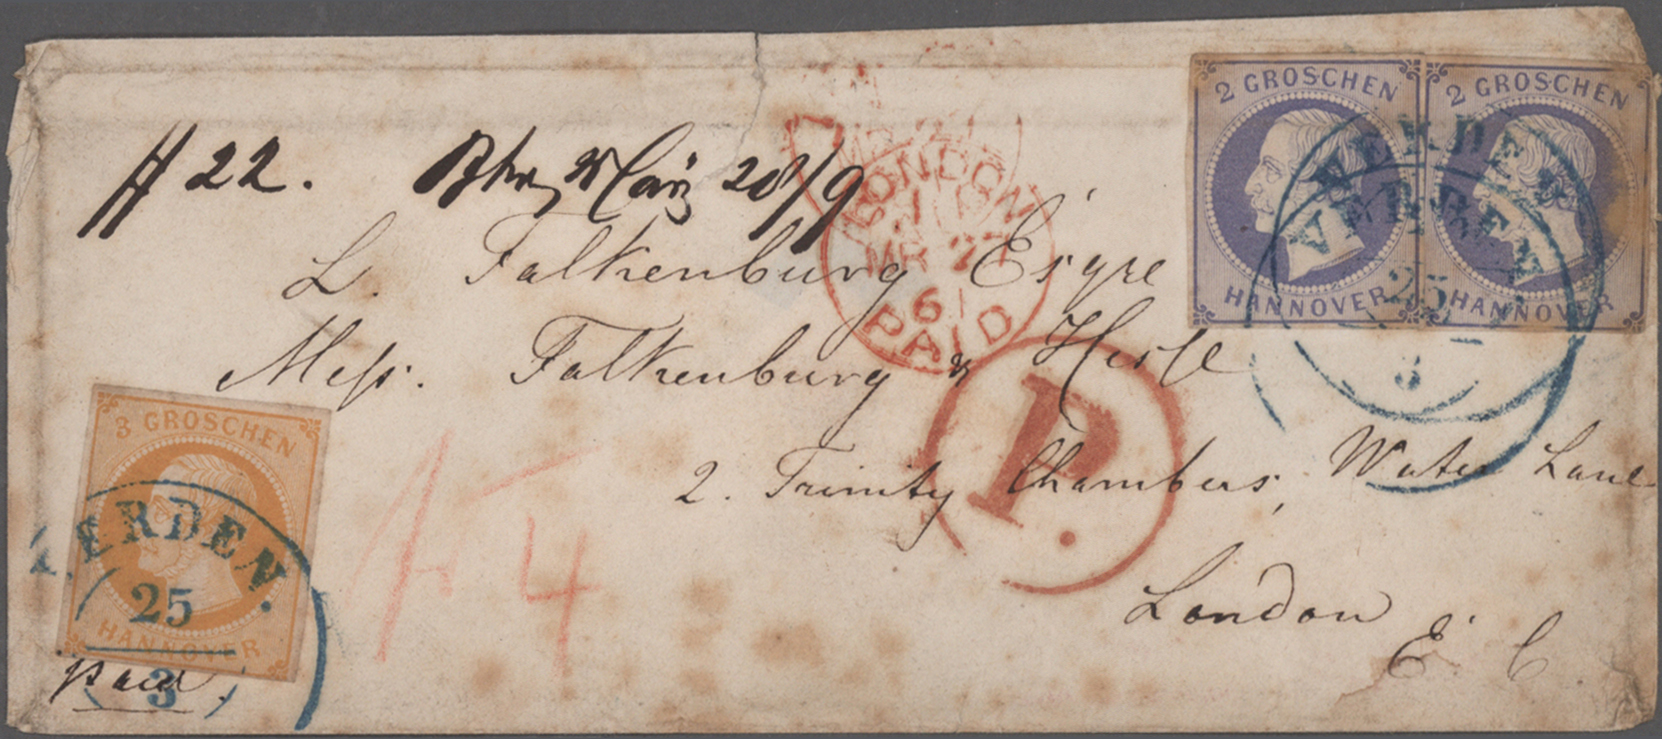 # 22.
L. Falkenburg Esqre
Mess. Falkenburg & Hesse
2. Trinity Chambers, Water Lane
London
E C
paid.
2 GROSCHEN
HANNOVER
2 GROSCHEN
HANNOVER
VERDEN
VERDEN
25
3
3 GROSCHEN
HANNOVER
VERDEN.
25
3
LONDON
MR 27
61
PAID
P.
4